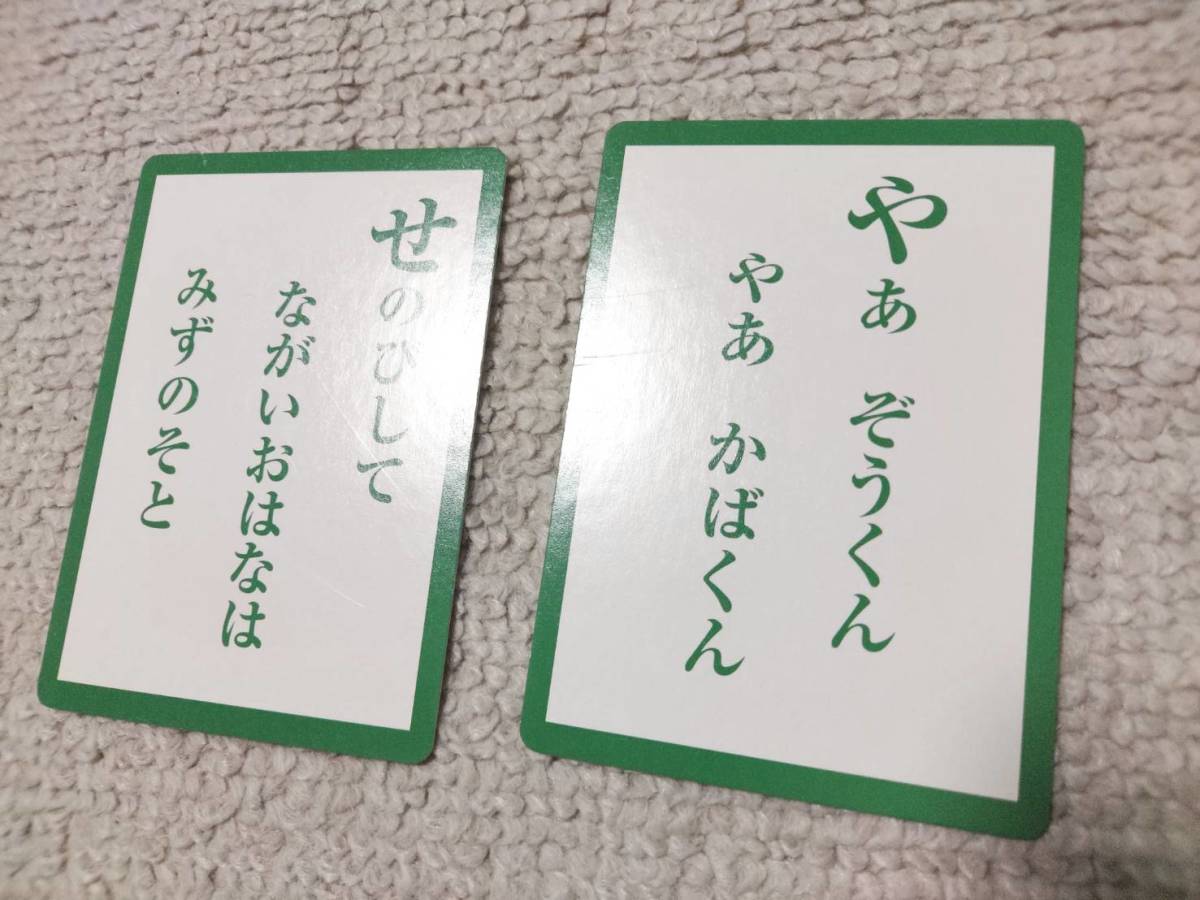 せのひして
ながいおはなは
みずのそと
やぁ ぞうくん
やあ かばくん